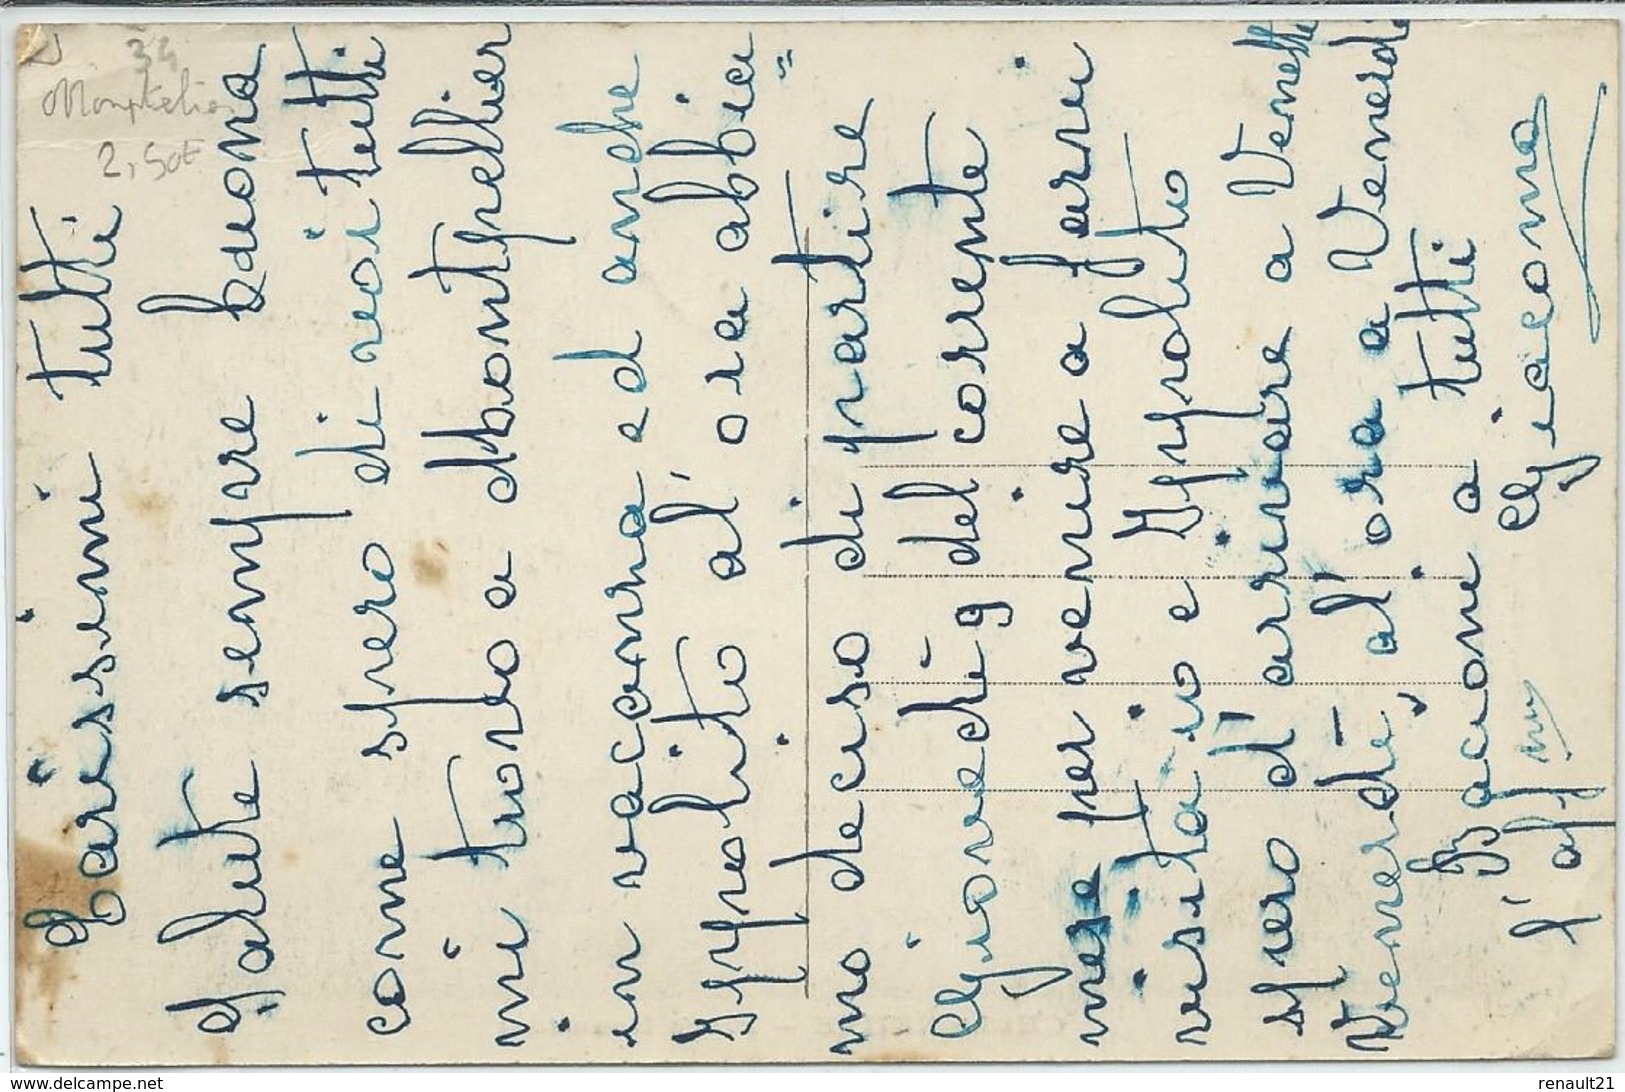 34
Montpellier
2,50€
Carissimi tutti
Salute sempre buona
come spero di voi tutti
mi trovo a Montpellier
in vacanza ed anche
Ippolito al' ora abbia=
mo deciso di partire
Giovedi 9 del corrente
mese per venire a farvi
visita io e Ippolito
spero d' arrivare a Venette
Venerdì, al' ora a Venerdi
Bacioni a tutti
l' aff
Giacomo
www.delcampe.net
renault21